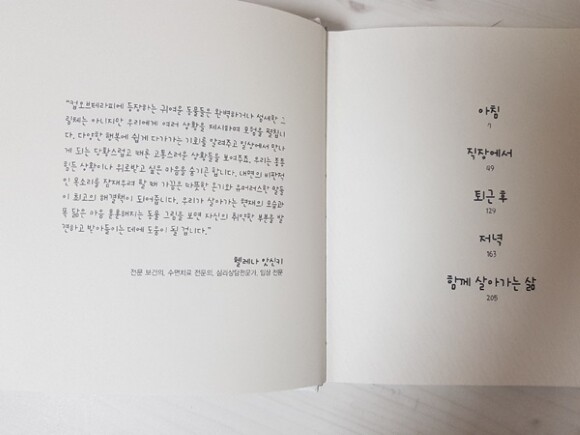 "컴포트테라피에 등장하는 귀여운 동물들은 완벽하거나 섬세한 그
림체는 아니지만 우리에게 여러 상황을 제시하며 모험을 펼칩니
다. 다양한 행복에 쉽게 다가가는 기회를 알려주고 일상에서 만나
게 되는 당황스럽고 때론 고통스러운 상황들을 보여주죠. 우리는 종종
힘든 상황이나 위로받고 싶은 마음을 숨기곤 합니다. 내면의 비판적
인 목소리를 잠재우려 할 때 가끔은 따뜻한 온기와 유머러스한 말들
이 최고의 해결책이 되어줍니다. 우리가 살아가는 현재의 모습과
똑 닮은 마음 훈훈해지는 동물 그림을 보면 자신의 취약한 부분을 발
견하고 받아들이는 데에 도움이 될 겁니다."
헬레나
전문 보건의, 수면치료 전문의, 심리상담전문가, 임상 전문
아침
직장에서
49
퇴근 후
129
저녁
163
함께 살아가는 삶
205